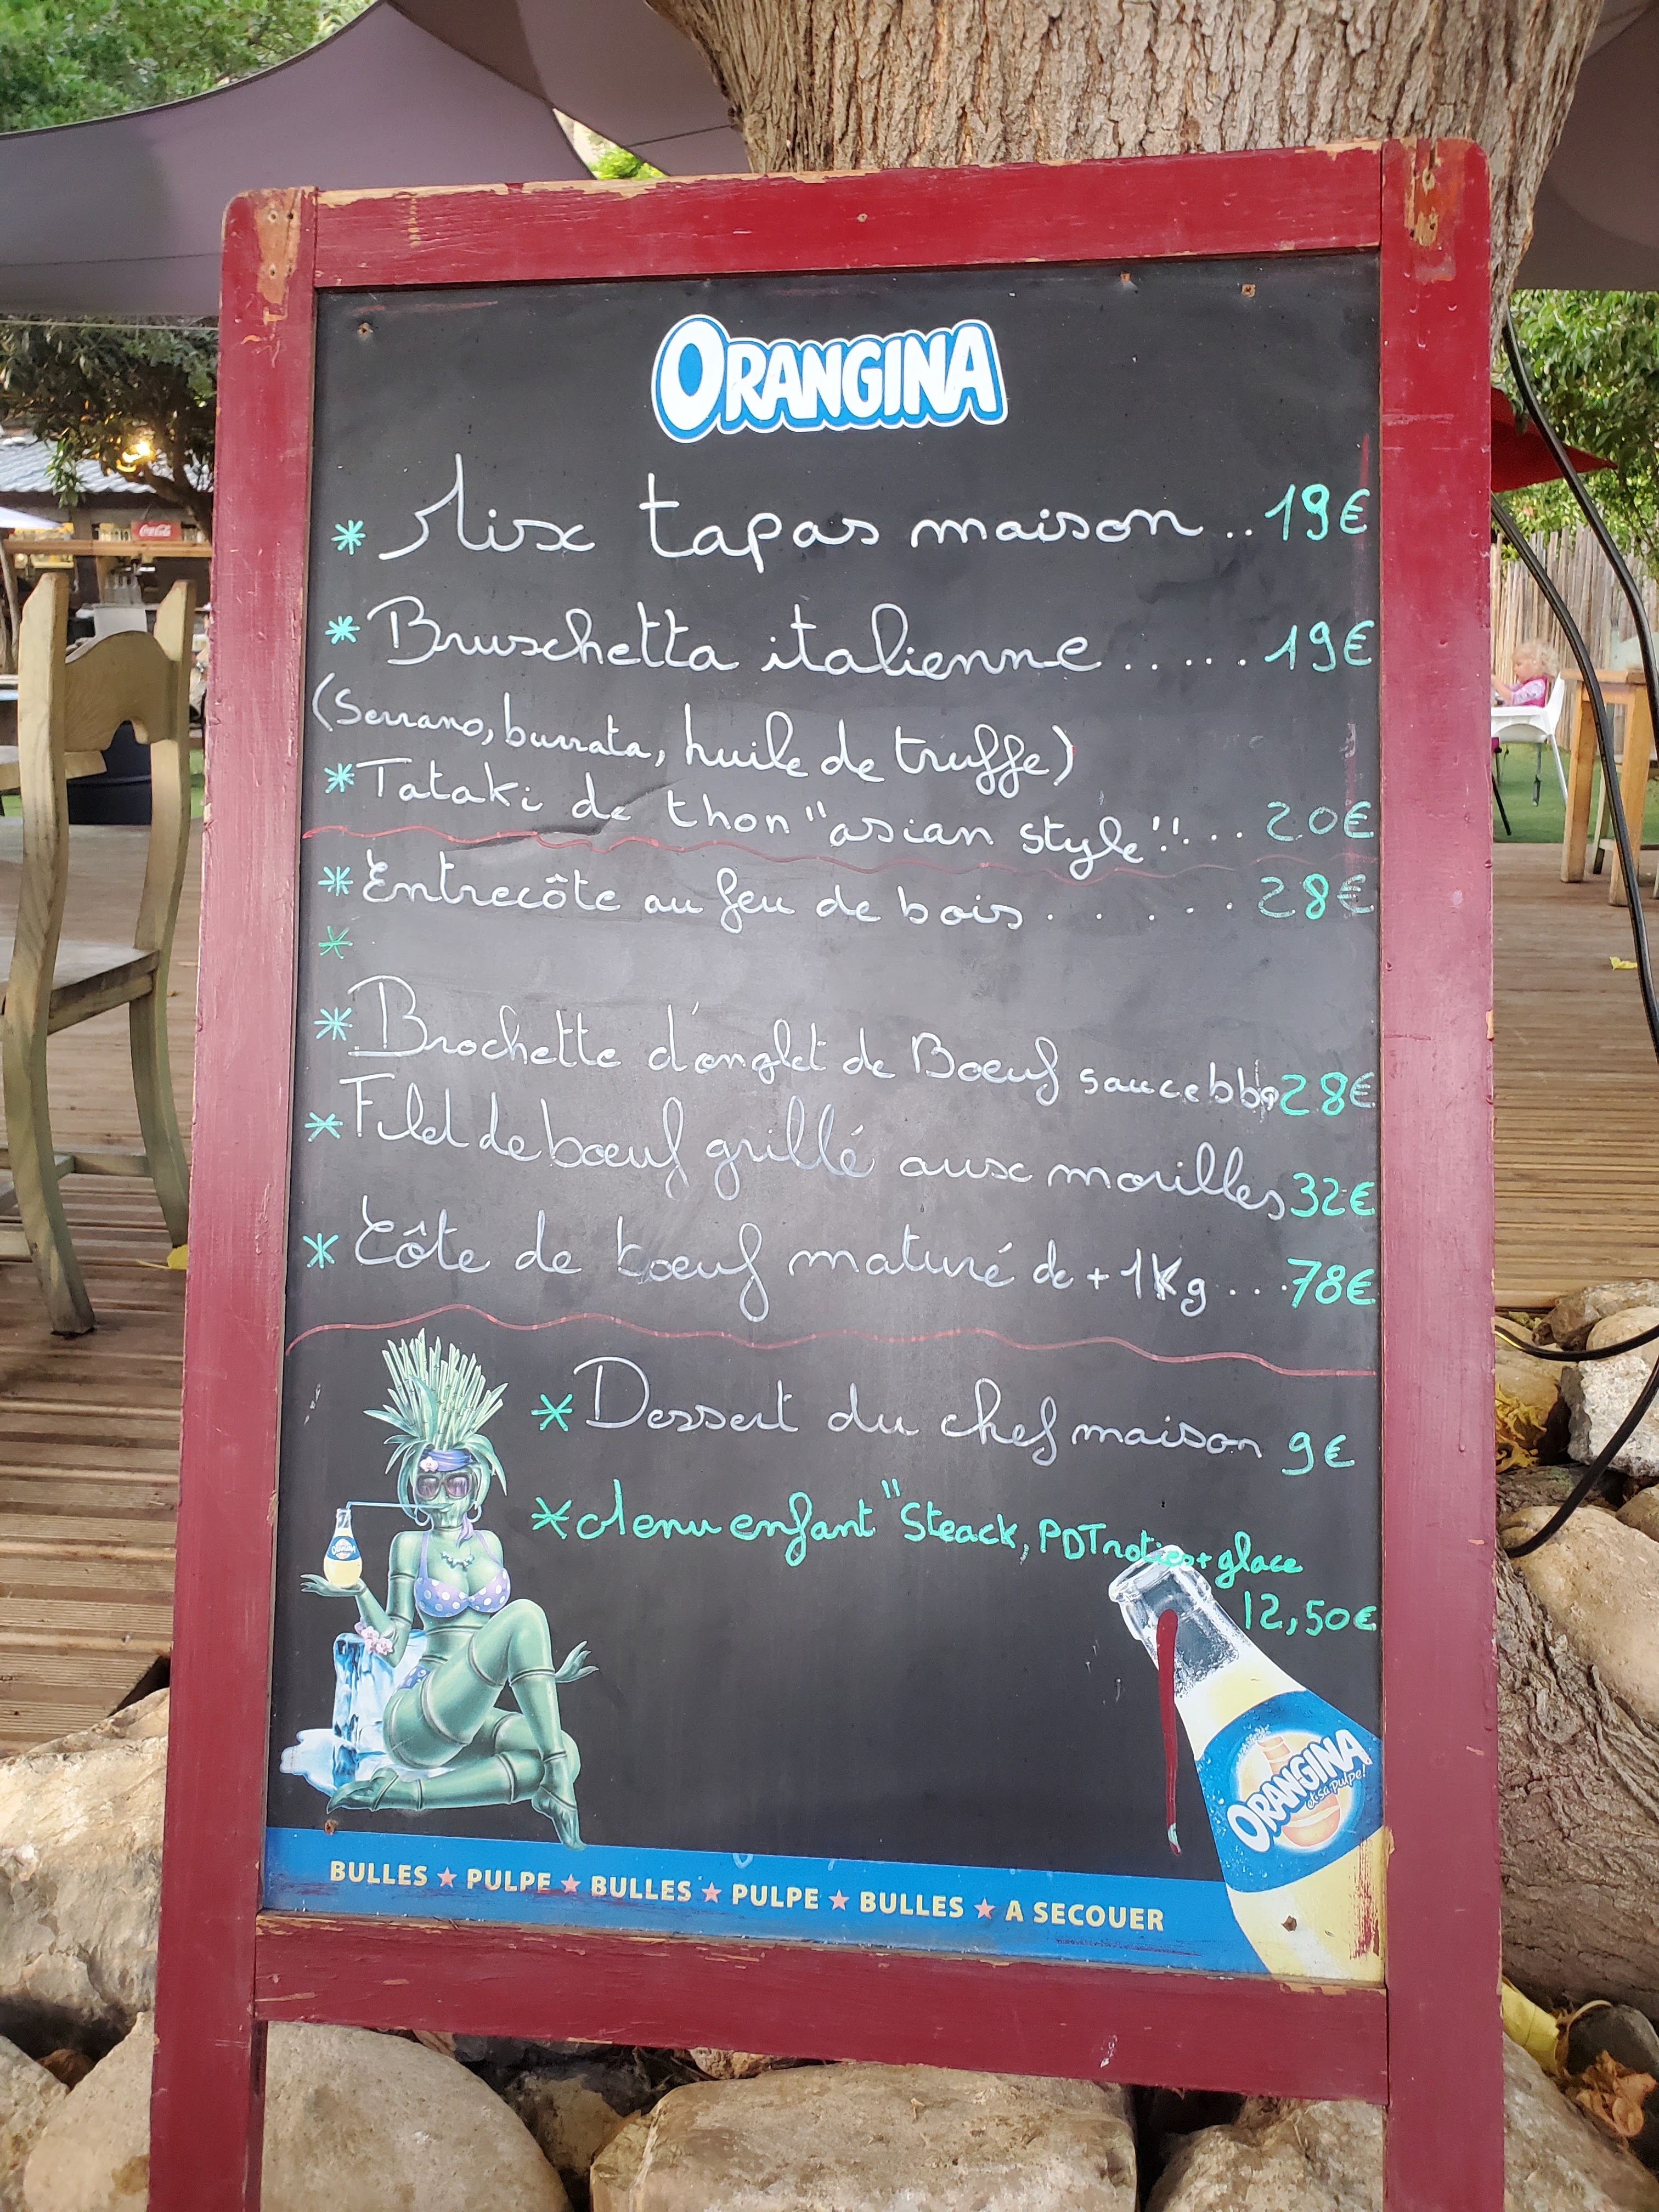 ORANGINA
* Mix tapas maison .. 19€
* Bruschetta italienne ...... 19€
(Serrano, burrata, huile de truffe)
* Tataki de thon "asian style"... 20€
* Entrecôte au feu de bois . . . . . . 28€
*
* Brochette d'onglet de Boeuf sauce bbq 28€
* Filet de boeuf grillé aux morilles 32€
* Côte de boeuf maturé de + 1Kg ... 78€
* Dessert du chef maison 9€
* Menu enfant "Steack, PDT roties + glace
12,50€
ORANGINA
et sa pulpe!
BULLES ★ PULPE ★ BULLES ★ PULPE ★ BULLES ★ A SECOUER
Coca-Cola